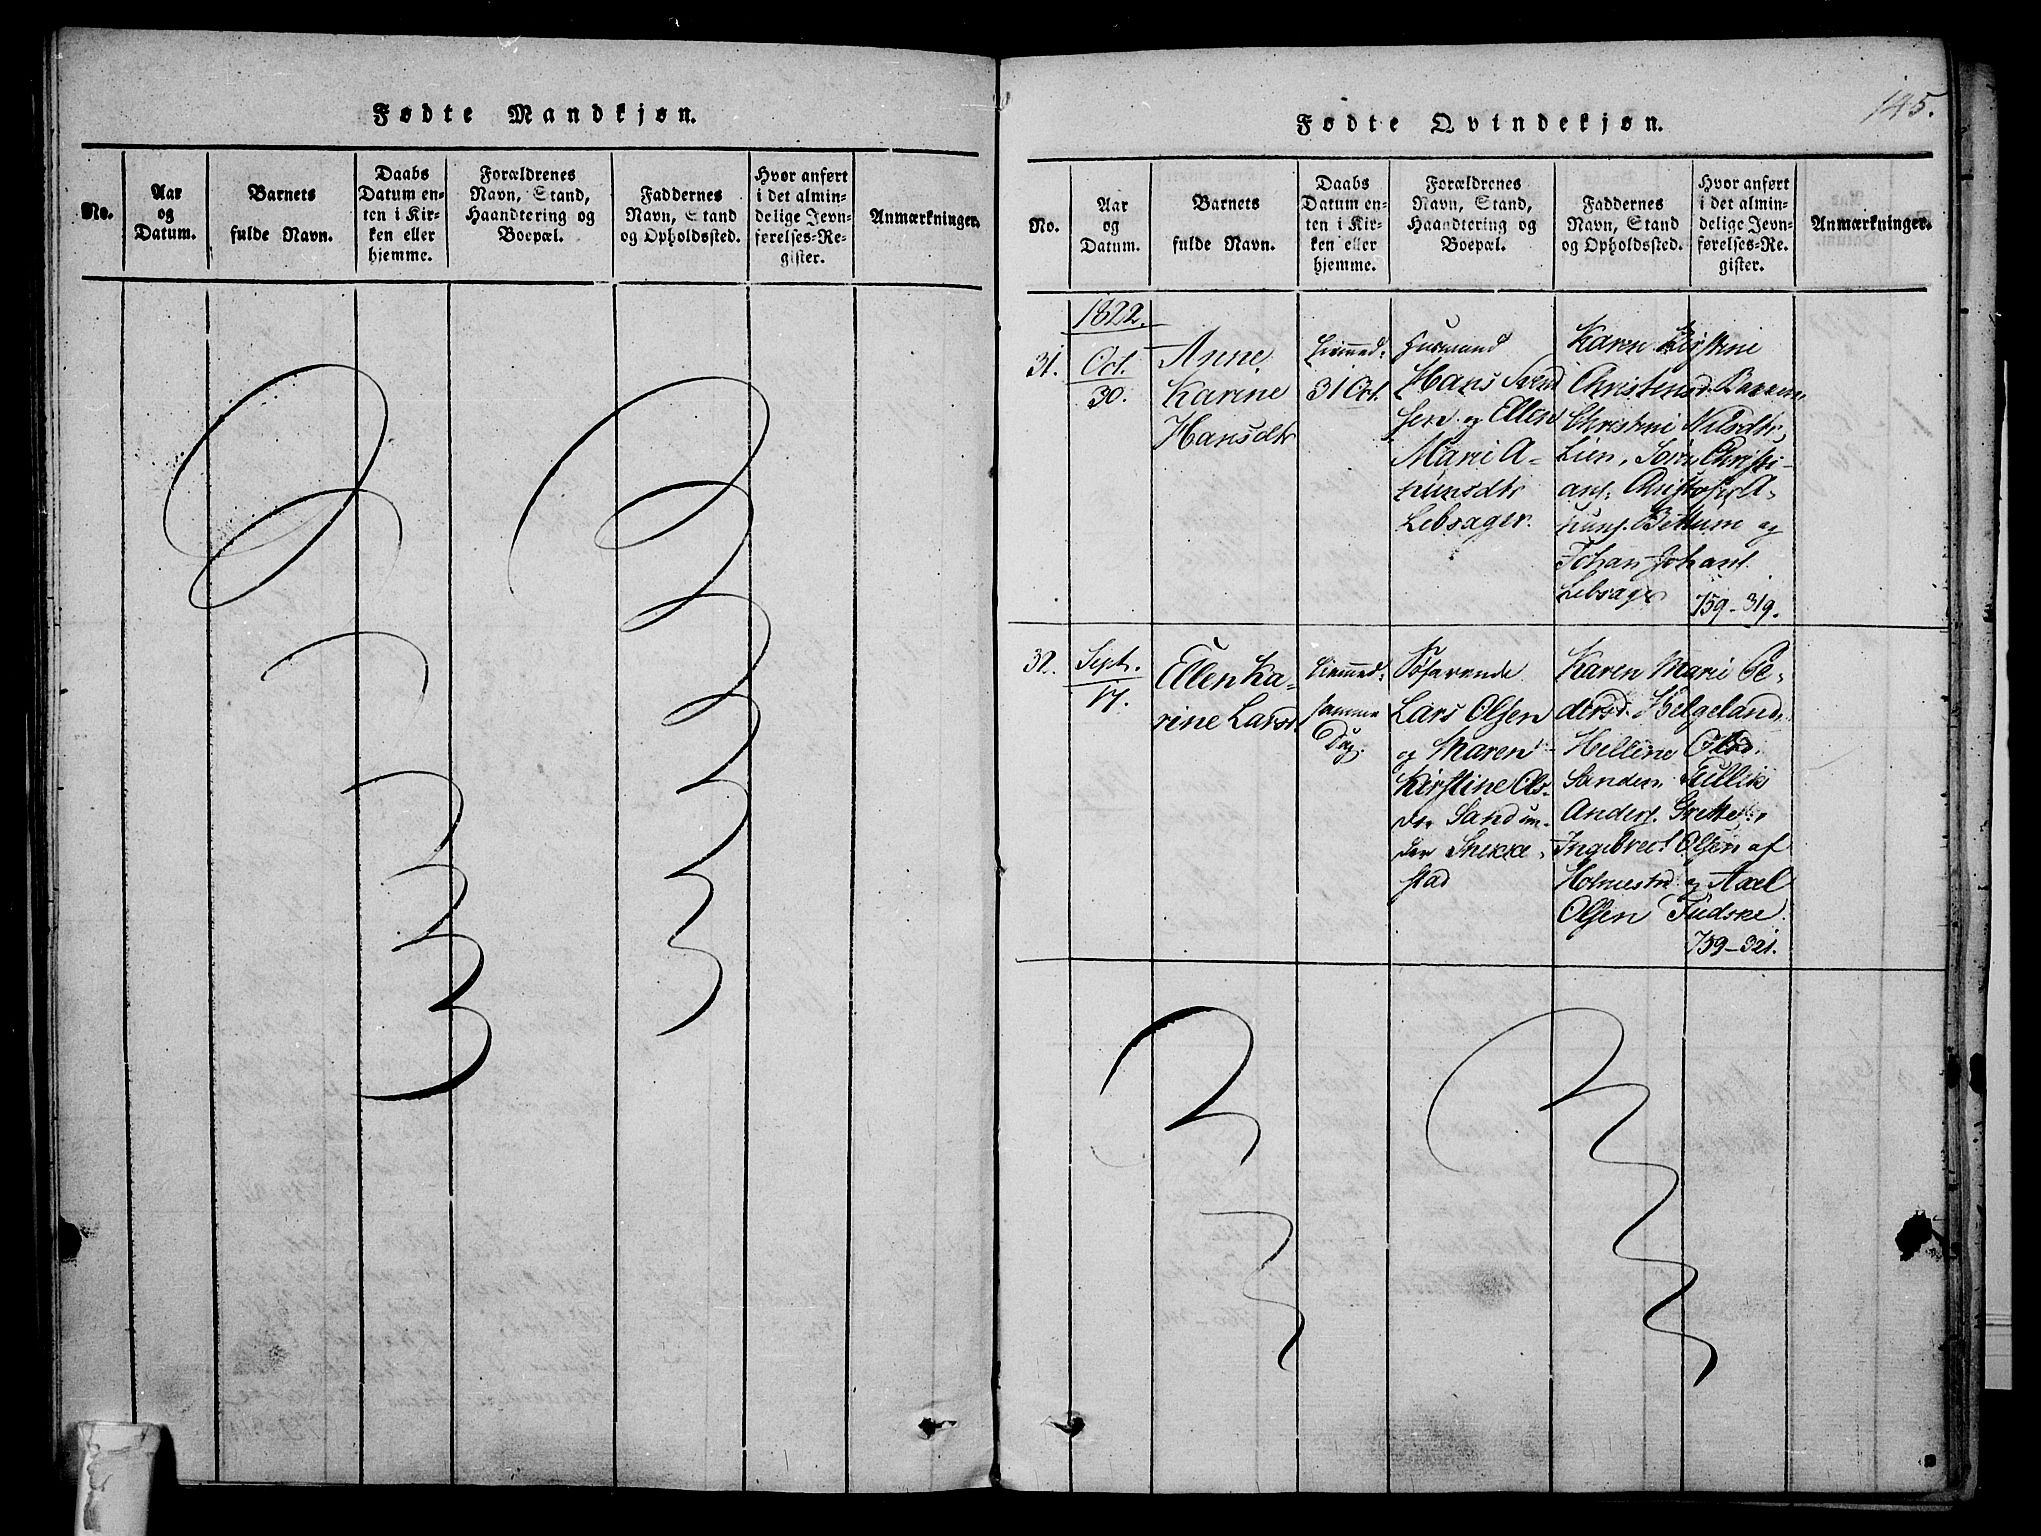 Fødte Mandkjøn.
No.
Aar
og
Datum.
Barnets
fulde Navn.
Daabs
Datum en-
ten i Kir-
ken eller
hjemme.
Forældrenes
Navn, Stand,
Haandtering og
Boepæl.
Faddernes
Navn, Stand
og Opholdssted.
Hvor anført
i det almin-
delige Jevn-
førelses-Re-
gister.
Anmærkninger.
145.
Fødte Qvindekjøn.
No.
Aar
og
Datum.
Barnets
fulde Navn.
Daabs
Datum en-
ten i Kir-
ken eller
hjemme.
Forældrenes
Navn, Stand,
Haandtering og
Boepæl.
Faddernes
Navn, Stand
og Opholdssted.
Hvor anført
i det almin-
delige Jevn-
førelses-Re-
gister.
Anmærkninger.
1822.
31.
Oct.
30.
Anne
Karine
Hansdtr
hiemmed:
31 Oct.
Huusmand
Hans Svend
sen og Ellen
Marie A-
mundsdtr
Lebsager.
Karen Kirstine
Christensd. Bakken,
Christine Nilsdtr,
Lien, Søren Christi-
ans. Christofer A-
muns. Bettum og
Johan Johans.
Lebsager
759-319.
32.
Sept.
17.
Ellen Ka-
rine Larsd
hiemmed:
samme
Dag.
Søfarende
Lars Olsen
og Maren
Kirstine Ols-
dr. Sand un-
der Snekke-
stad
Karen Marie Pe-
dersd. Helgeland,
Helline Olsd.
Sanden, Tullik
Anders. Grette,
Ingebret Olsen af
Holmestr. og Axel
Olsen Tudske.
759-321.